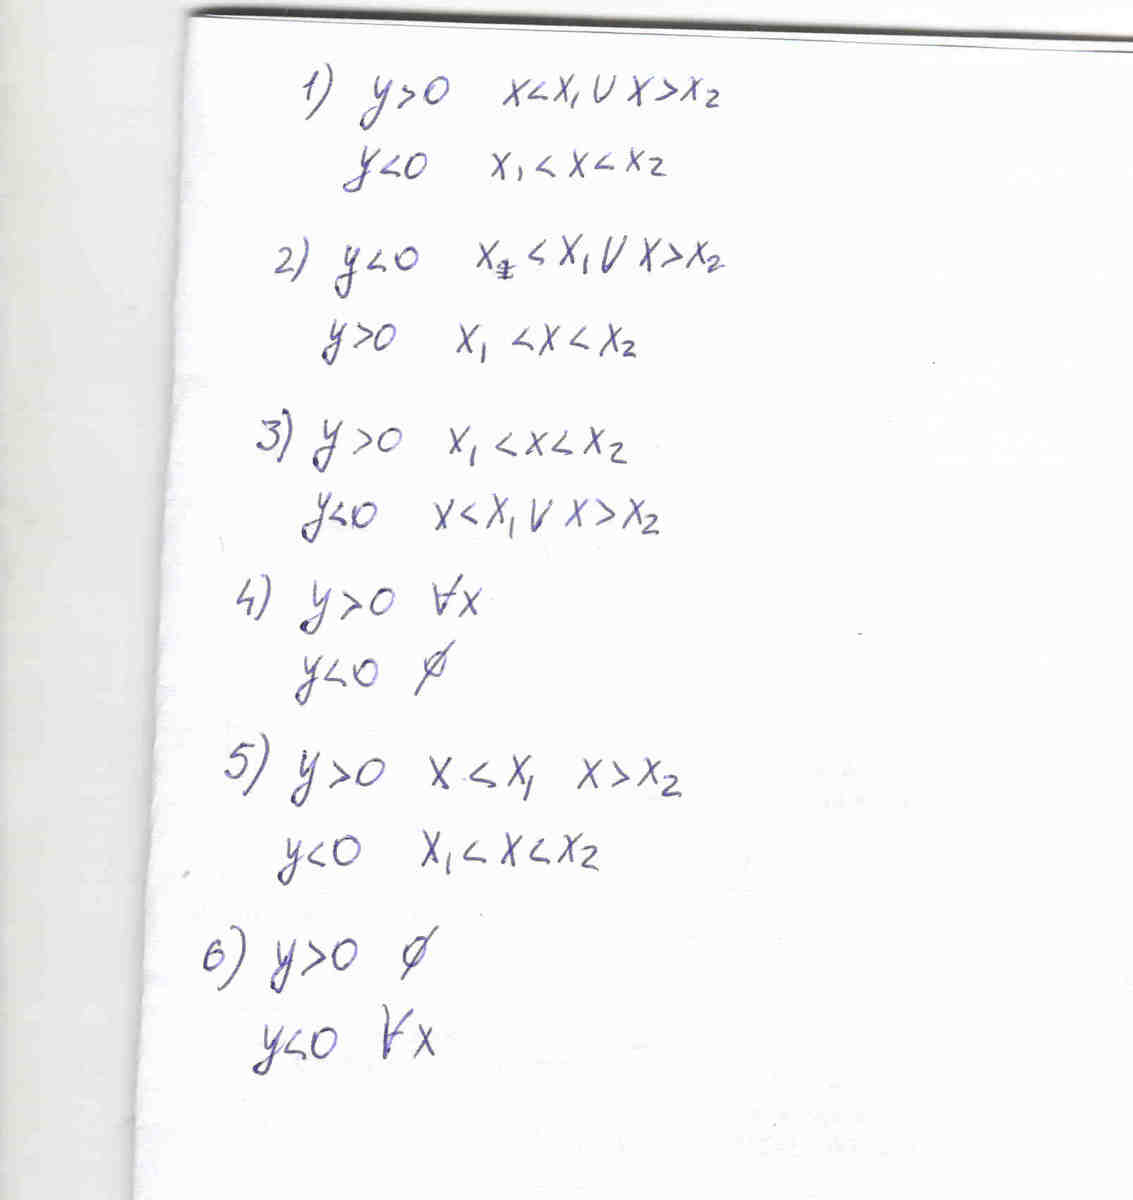 1) y>0 x<x₁ ∪ x>x₂
y<0 x₁<x<x₂
2) y<0 x₂<x₁ ∪ x>x₂
y>0 x₁<x<x₂
3) y>0 x₁<x<x₂
y<0 x<x₁ ∪ x>x₂
4) y>0 ∀x
y<0 ∅
5) y>0 x<x₁ x>x₂
y<0 x₁<x<x₂
6) y>0 ∅
y<0 ∀x